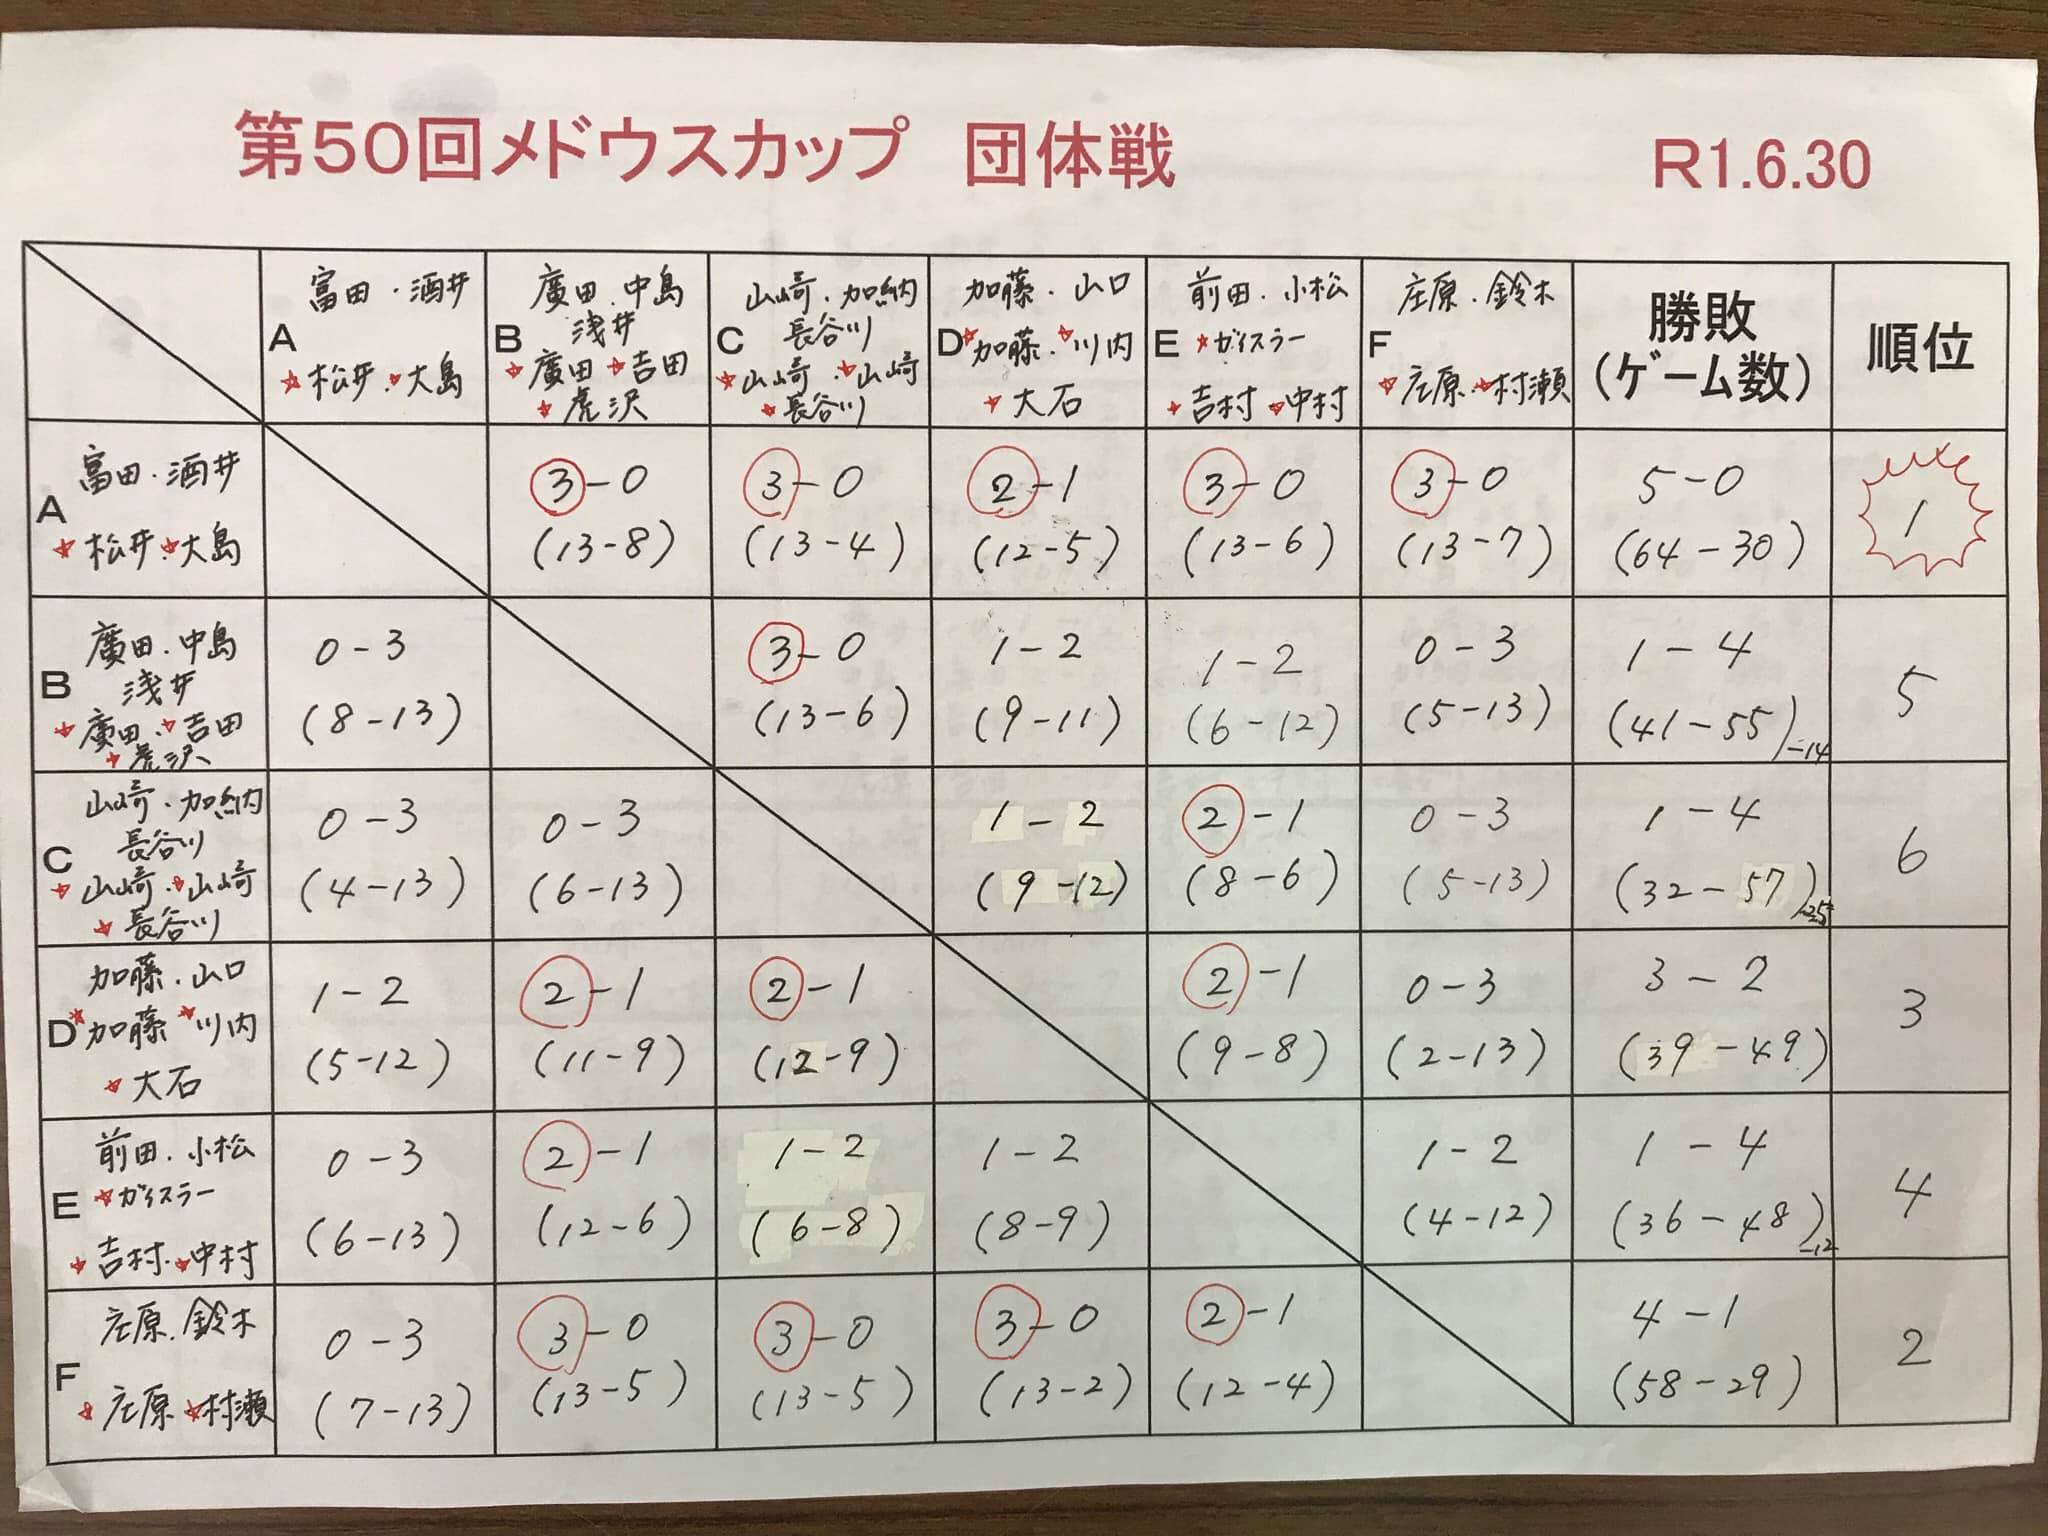 第50回メドウスカップ 団体戦 R1.6.30
富田・酒井
A
★松井・★大島
廣田・中島
浅井
B
★廣田・★吉田
★虎沢
山崎・加納
長谷川
C
★山崎・★山崎
★長谷川
加藤・山口
D ★加藤・★川内
★大石
前田・小松
E ★ガイスラー
★吉村 ★中村
庄原・鈴木
F
★庄原・★村瀬
勝敗
(ゲーム数)
順位
A 富田・酒井
★松井・★大島
3-0 3-0 2-1 3-0 3-0 5-0
(13-8) (13-4) (12-5) (13-6) (13-7) (64-30)
1
B 廣田・中島
浅井
★廣田・★吉田
★虎沢
0-3 3-0 1-2 1-2 0-3 1-4
(8-13) (13-6) (9-11) (6-12) (5-13) (41-55)-14
5
C 山崎・加納
長谷川
★山崎・★山崎
★長谷川
0-3 0-3 1-2 2-1 0-3 1-4
(4-13) (6-13) (9-12) (8-6) (5-13) (32-57)-25
6
D 加藤・山口
★加藤 ★川内
★大石
1-2 2-1 2-1 2-1 0-3 3-2
(5-12) (11-9) (12-9) (9-8) (2-13) (39-49)
3
E 前田・小松
★ガイスラー
★吉村・★中村
0-3 2-1 1-2 1-2 1-2 1-4
(6-13) (12-6) (6-8) (8-9) (4-12) (36-48)-12
4
F 庄原・鈴木
★庄原 ★村瀬
0-3 3-0 3-0 3-0 2-1 4-1
(7-13) (13-5) (13-5) (13-2) (12-4) (58-29)
2